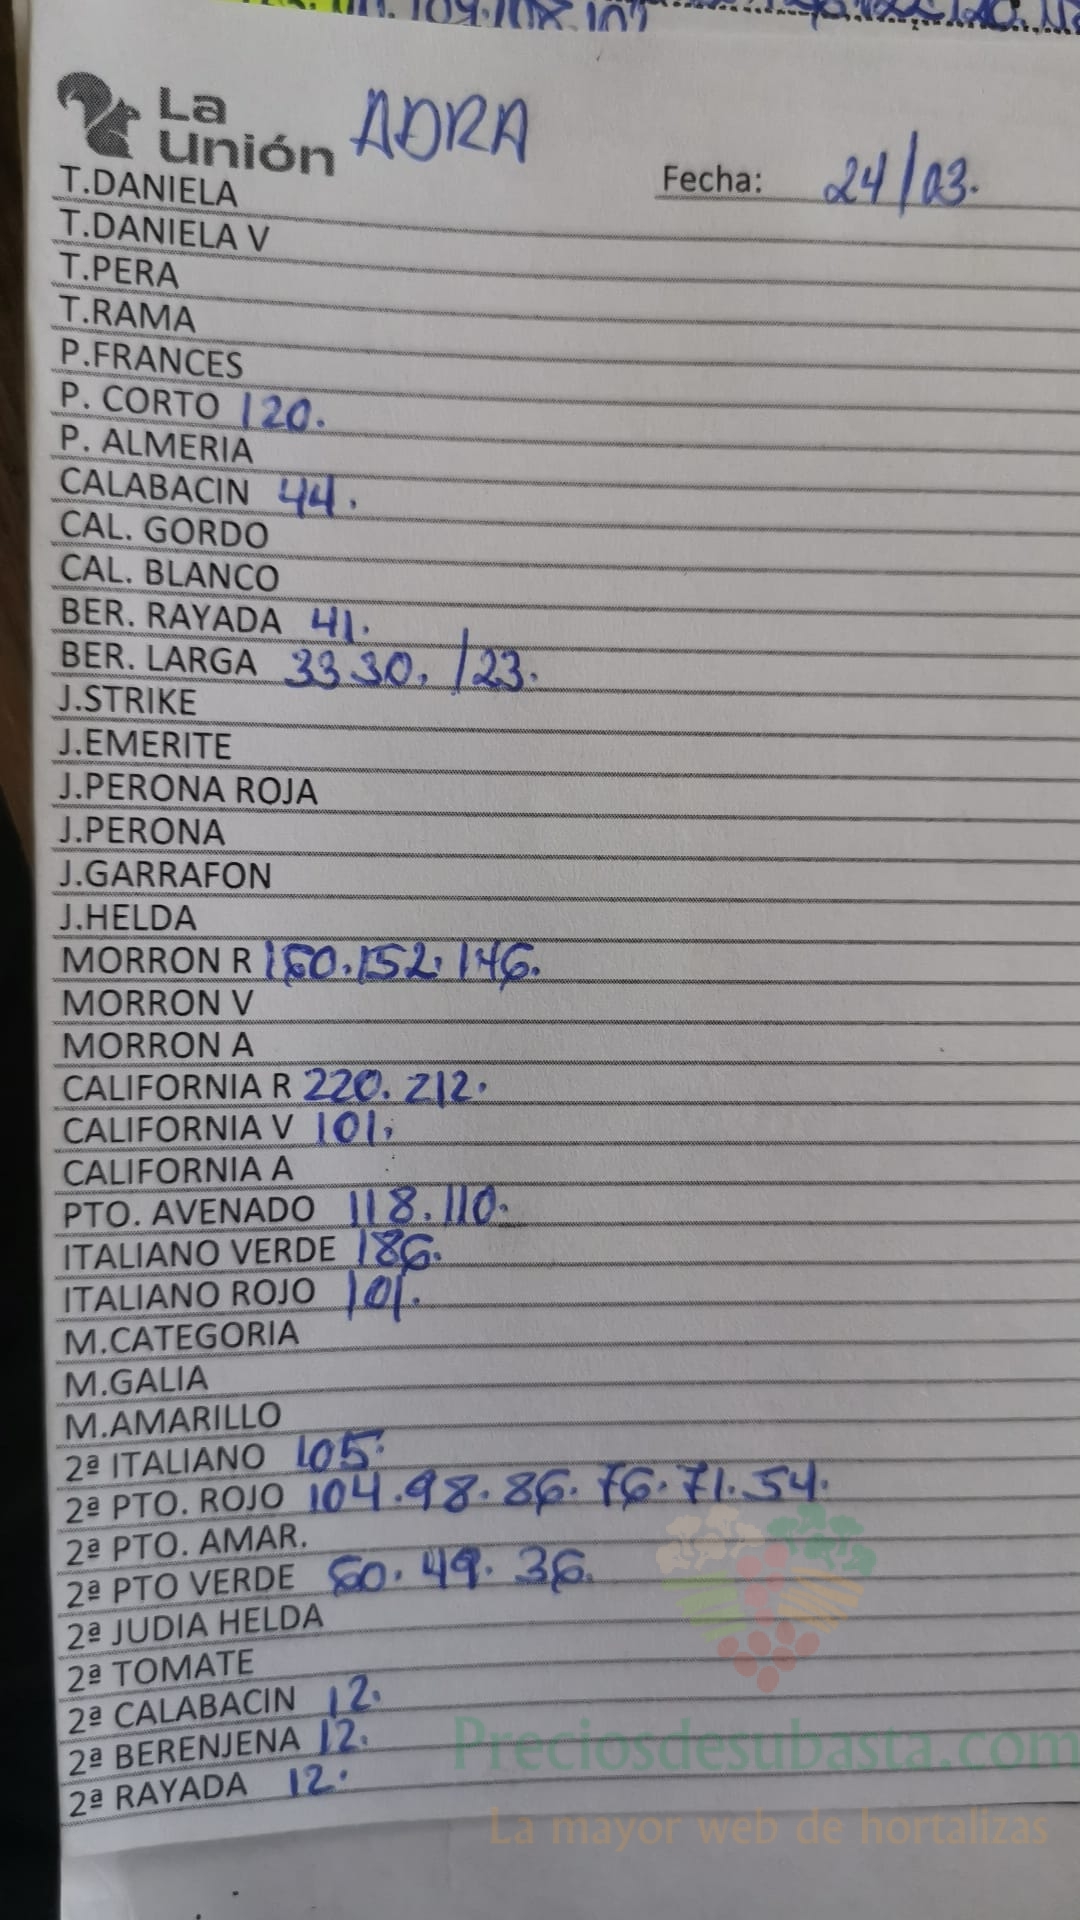 La Unión ADRA
Fecha: 24/03.
T.DANIELA
T.DANIELA V
T.PERA
T.RAMA
P.FRANCES
P. CORTO 120.
P. ALMERIA
CALABACIN 44.
CAL. GORDO
CAL. BLANCO
BER. RAYADA 41.
BER. LARGA 33 30. /23.
J.STRIKE
J.EMERITE
J.PERONA ROJA
J.PERONA
J.GARRAFON
J.HELDA
MORRON R 160.152.146.
MORRON V
MORRON A
CALIFORNIA R 220. 212.
CALIFORNIA V 101.
CALIFORNIA A
PTO. AVENADO 118.110.
ITALIANO VERDE 186.
ITALIANO ROJO 101.
M.CATEGORIA
M.GALIA
M.AMARILLO
2ª ITALIANO 105.
2ª PTO. ROJO 104.98.86.76.71.54.
2ª PTO. AMAR.
2ª PTO VERDE 60. 49. 36.
2ª JUDIA HELDA
2ª TOMATE
2ª CALABACIN 12.
2ª BERENJENA 12.
2ª RAYADA 12.
Preciosdesubasta.com
La mayor web de hortalizas